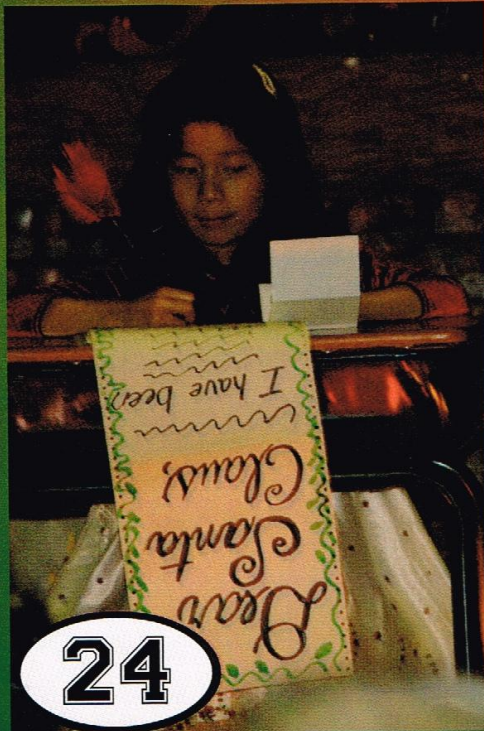 Dear
Santa
Claus,
I have been
24